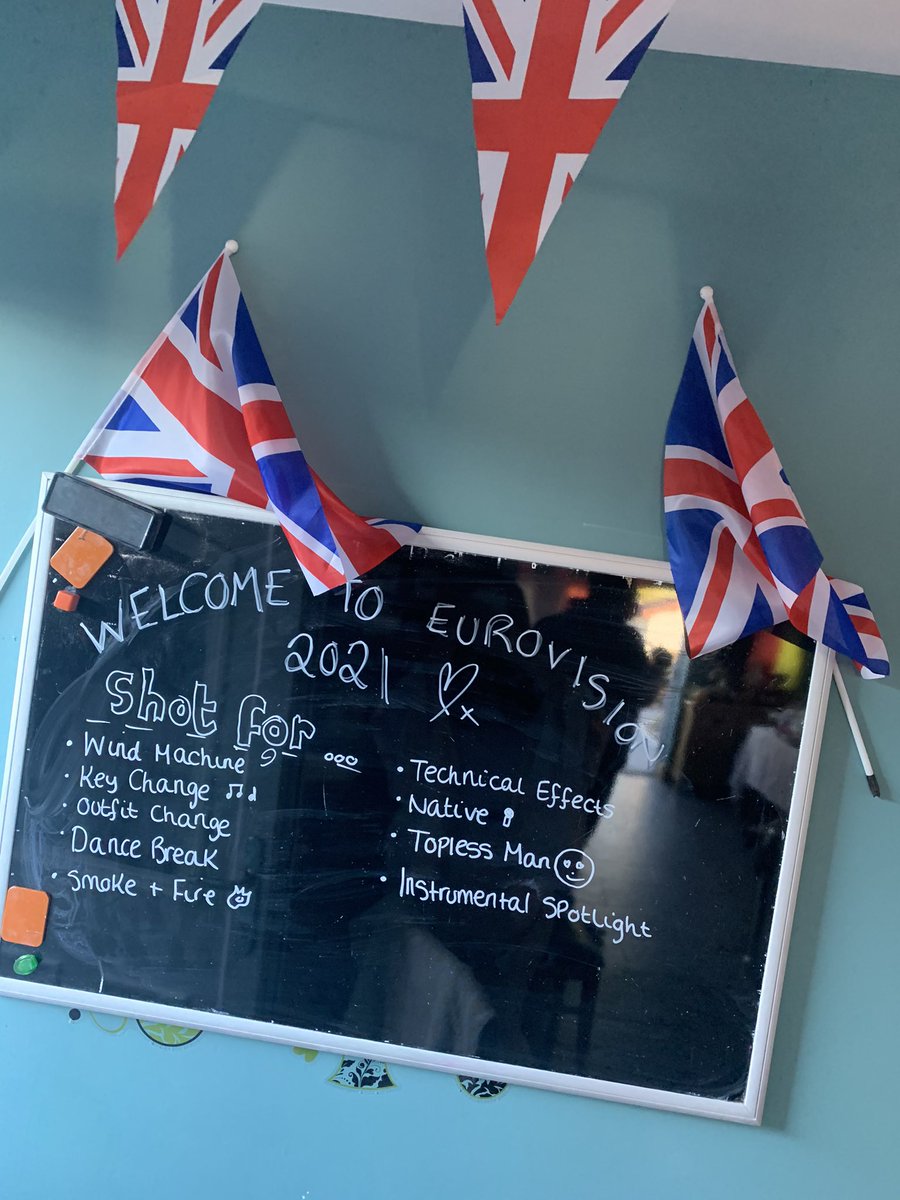 WELCOME TO EUROVISION
2021
Shot for...
• Wind Machine
• Key Change
• Outfit Change
• Dance Break
• Smoke + Fire
• Technical Effects
• Native
• Topless Man
• Instrumental Spotlight